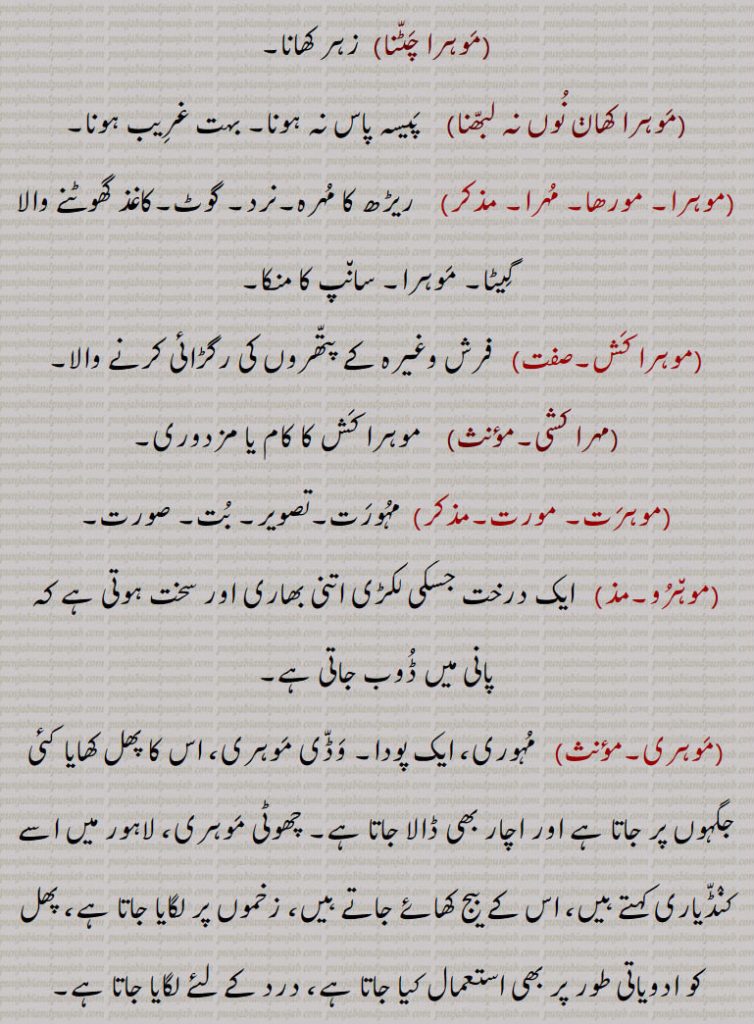 (مَوہرا چَٹّنا) زہر کھانا۔
(مَوہرا کھاݨ نُوں نہ لبھّنا) پَیسہ پاس نہ ہونا۔ بہت غرِیب ہونا۔
(موہرا۔ مورھا۔ مُہرا۔ مذکر) ریڑھ کا مُہرہ۔نرد۔ گوٹ۔کاغذ گھُوٹنے والا
گِیٹا۔ مَوہرا۔ سانّپ کا منکا۔
(موہرا کَش۔صفت) فرش وغیرہ کے پتّھروں کی رگڑائی کرنے والا۔
(مہرا کشی۔مؤنث) موہرا کَش کا کام یا مزدوری۔
(موہرَت۔ مورت۔مذکر) مہُورَت۔تصویر۔ بُت۔ صورت۔
(موہّرُو۔مذ) ایک درخت جسکی لکڑی اتنی بھاری اور سخت ہوتی ہے کہ
پانی میں ڈُوب جاتی ہے۔
(مَوہری۔مؤنث) مہُوری، ایک پودا۔ وَڈّی مَوہری، اس کا پھل کھایا کئی
جگہوں پر جاتا ہے اور اچار بھی ڈالا جاتا ہے۔ چھوٹی مَوہری، لاہور میں اسے
کنْڈّیاری کہتے ہیں، اس کے بیج کھائے جاتے ہیں، زخموں پر لگایا جاتا ہے، پھل
کو ادویاتی طور پر بھی استعمال کیا جاتا ہے، درد کے لئے لگایا جاتا ہے۔